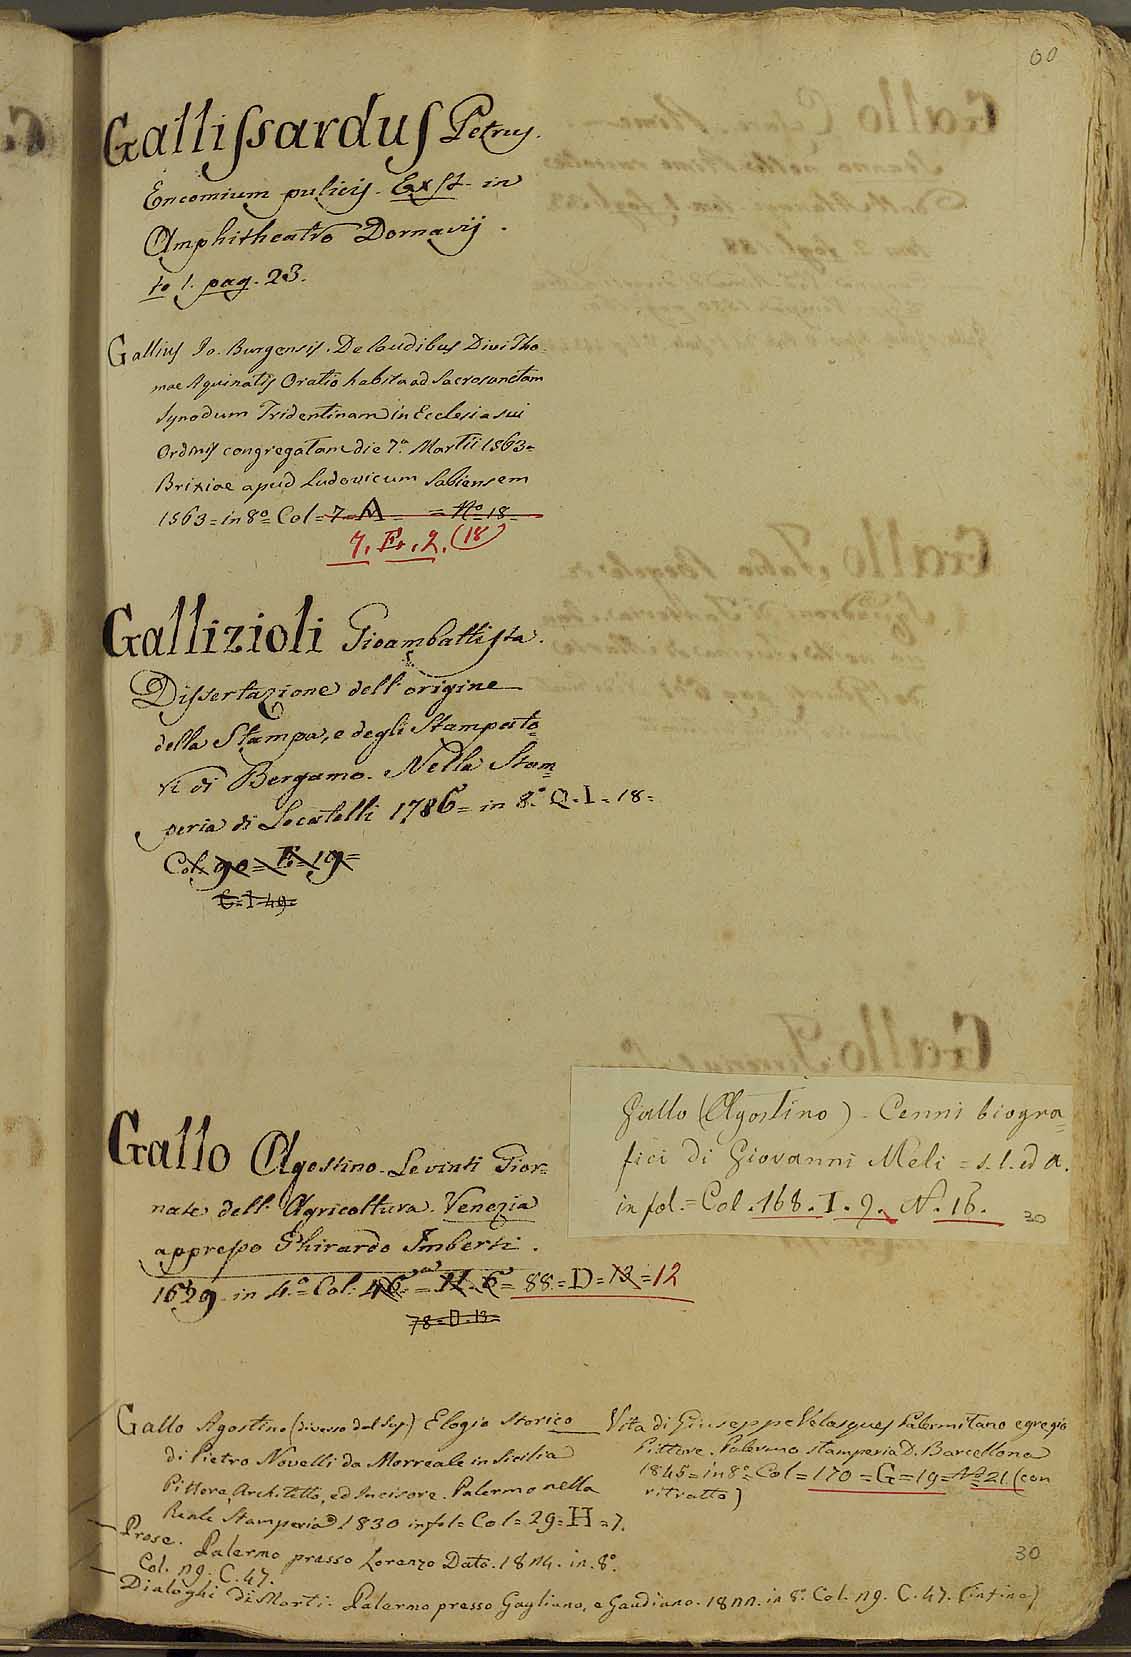 Gallissardus Petrus.
Encomium pulicis. Exst. in
Amphitheatro Dornavij.
to 1. pag. 23.
Gallius Io. Burgensis. De laudibus Divi Tho-
mae Aquinatis Oratio habita ad Sacrosanctam
Synodum Tridentinam in Ecclesia sui
Ordinis congregatam die 7.a Martii 1563=
Brixiae apud Ludovicum Sabiensem
1563=in 8º= Col=7=A = Nº=18=
7. F. 2. (18)
Gallizioli Gioambattista.
Dissertazione dell' origine
della Stampa, e degli Stampato=
ri di Bergamo. Nella Stam=
peria di Locatelli 1786= in 8.º Q.I.18=
Col. 90= F=19=
C=I=49=
Gallo Agostino. Le vinti Gior=
nate dell' Agricoltura. Venezia
appresso Ghirardo Imberti.
1629. in 4.º= Col: 46.=H.6= 88.=D=13=12
78=D.13=
Gallo (Agostino) - Cenni biogra=
fici di Giovanni Meli = s.l. ed a.
in fol.= Col. 168. I. 9. N. 16.
30
Gallo Agostino (diverso dal Sup.) Elogio Storico
di Pietro Novelli da Morreale in Sicilia
Pittore, Architetto, ed Incisore. Palermo nella
Reale Stamperia 1830 in fol= Col=29=H=7.
Vita di Giuseppe Velasques Palermitano egregio
Pittore. Palermo stamperia D. Barcellona
1845=in 8º= Col=170=G=19=Nº 21 (con
ritratto)
Prose. Palermo presso Lorenzo Dato. 1824. in. 8º.
Col. 29. C. 47.
Dialoghi di Morti. Palermo presso Gagliano, e Gaudiano. 1822. in 8º. Col. 29. C. 47. (in fine)
30